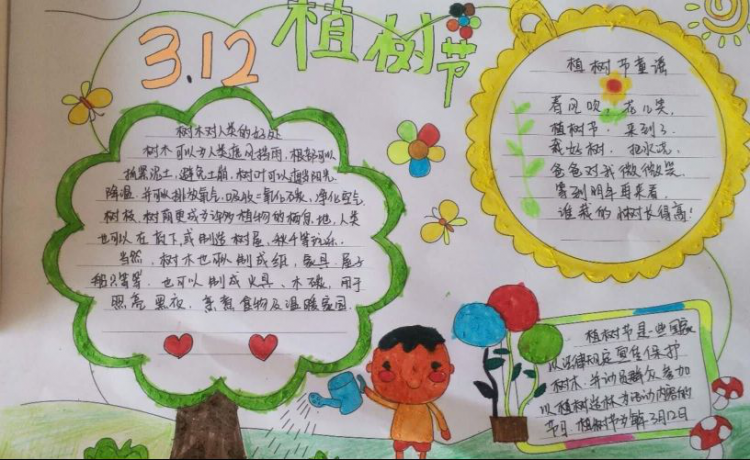 3.12
植树节
树木对人类的好处
树木可以为人类遮风挡雨,根部可以
抓紧泥土,避免土崩,树叶可以遮挡阳光
降温,并可以排放氧气,吸收二氧化碳,净化空气
树枝、树洞更成为许多植物的栖息地,人类
也可以在放下,或制造树屋、秋千等玩乐。
当然,树木也可以制成纸,家具,屋子
船只等等,也可以制成火具、木碳,用于
照亮黑夜、煮食物及温暖家园
植树节童谣
春风吹,花儿笑,
植树节,来到了。
我好树,把水浇,
爸爸对我微微笑
等到明年再来看,
谁栽的树长得高!
植树节是一些国家
以法律规定宣传保护
树木,并动员群众参加
以植树造林为活动内容的
节日,植树节为每年3月12日